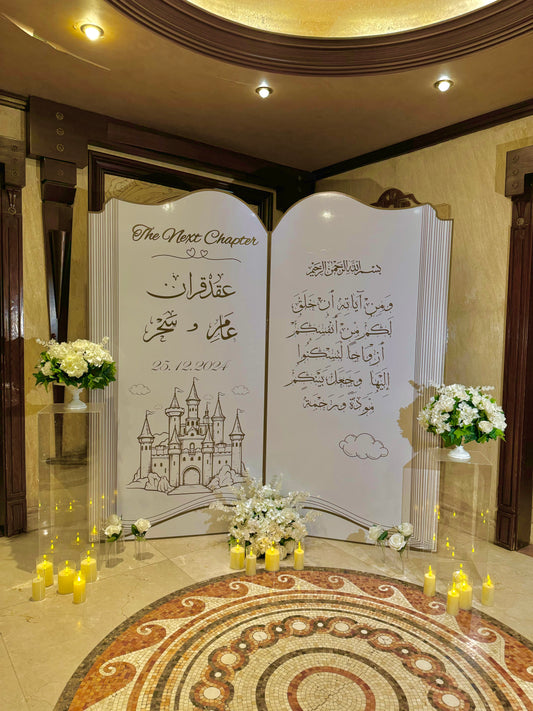 The Next Chapter
عقد قران
عامر و سحر
25.12.2024
بسم الله الرحمن الرحيم
ومن آياته أن خلق
لكم من أنفسكم
أزواجاً لتسكنوا
إليها وجعل بينكم
مودة ورحمة